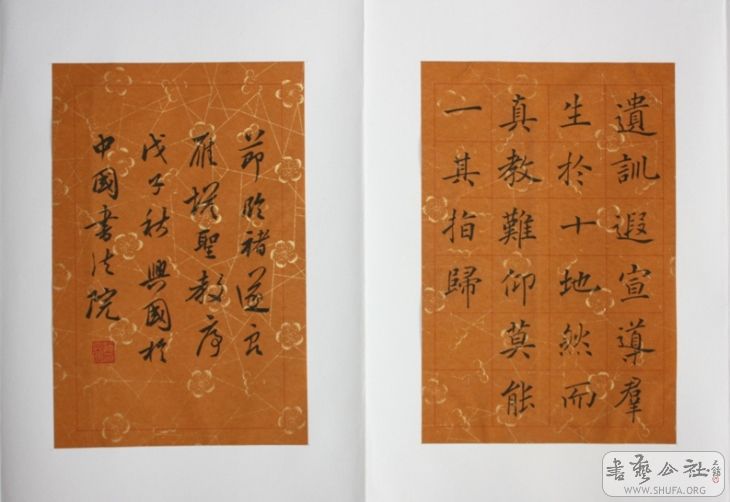 遺訓遐宣導羣
生於十地然而
真教難仰莫能
一其指歸
節臨褚遂良
雁塔聖教序
戊子秋興國於
中國书法院
書藝公社
WWW.SHUFA.ORG